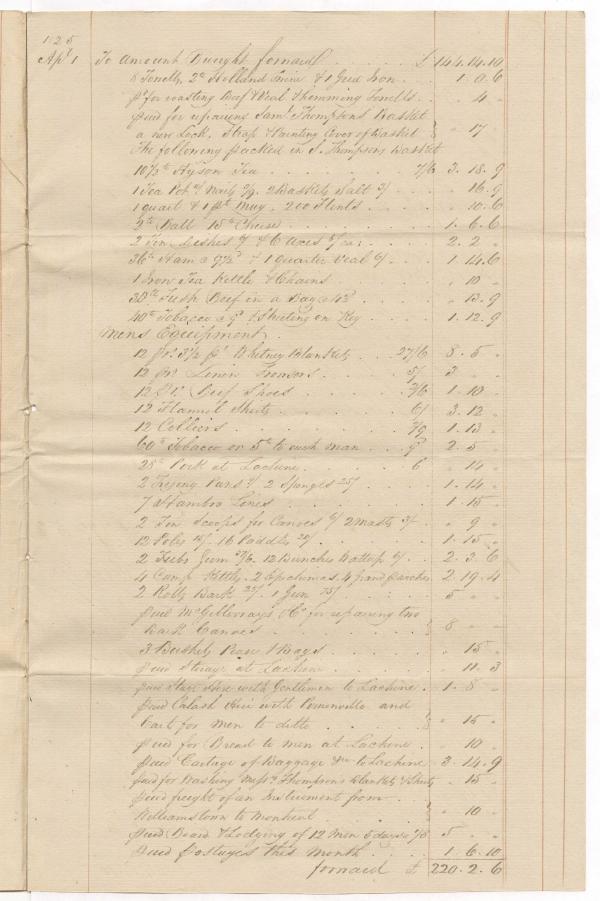 1825
Apl 1 To Amount Brought forward . . . . £ 144.04.10
6 Towells, 2 Holland Twine & 1 Grid Iron . . 1. 0. 6
pd for roasting Beef & Veal & hemming Towells . . " 4 "
paid for repairing Saml. Thompson's Basket
a new Lock, Strap & Painting Cover of Basket } " 17 "
The following packed in S. Thompson's Basket
10 1/2 lb Hyson Tea . . . . 7/6 3. 18. 9
1 Tea Pot, 2 Baskets Salt . . . " 16. 9
1 quart & 1 pt Mug, 200 Flints . . " 10. 6
Ball 15 lb Cheese . . . . 1. 6. 6
2 Tin Dishes & 6 axes . . 2. 2 "
36 lb Ham @ 9½d & 1 quarter Veal . . 1. 14. 6
1 Iron Tea Kettle & Chains . . . " 10 "
30 lb Fresh Beef in a Bag . . " 13. 9
40 lb Tobacco @ 9d & Sheeting on Keg . . 1. 12. 9
Mens Equipment.
12 prs. 3 1/2 pt Whitney Blankets . . 27/6 8. 5 "
12 prs Linen Trowsers . . . 5/ 3 " "
12 prs Beef Shoes . . . 2/6 1. 10 "
12 Flannel Shirts . . . 6/ 3. 12 "
12 Colliers . . . 2/9 1. 13 "
60 lb Tobacco or 5 lb to each man . . 9d 2. 5 "
28 lb Pork at Lachine . . . 6 " 14 "
2 Frying Pans 2 Sponges . . 1. 14 "
7 Hambro Lines . . . 1. 15 "
2 Tin Scoops for Canoes 2 Masts . . " 9 "
12 Poles 16 Paddles . . 1. 15 "
2 Tubs Gum 12 Bunches Wattap . . 2. 3. 6
4 Camp Kettles, 2 4 2. 19. 4
2 Rolls Bark 1 Gun . . 5 " "
paid McGillivrays & Co for repairing two
Bark Canoes . . . } 8 " "
3 Bushels Pease & Bags . . . " 15 "
paid Storage at Lachine . . . " 11. 3
paid Stage Hire with Gentlemen to Lachine . 1. 8 "
paid Calash Hire with Pomenville and
Cart for men to ditto . . . } " 15 "
paid for Bread to men at Lachine . . " 10 "
paid Cartage of Baggage &c to Lachine . 2. 14. 9
paid for Washing Messrs Thompson's Blankets & Sheets . " 15 "
paid freight of an Instrument from
Williamstown to Montreal . . } " 10 "
paid Board & Lodging of 12 Men 5 " "
paid postages this month . . . 1. 6. 10
forward £ 220. 2. 6